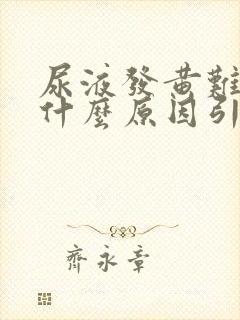 尿液發黃難
什麼原因引
齊永章